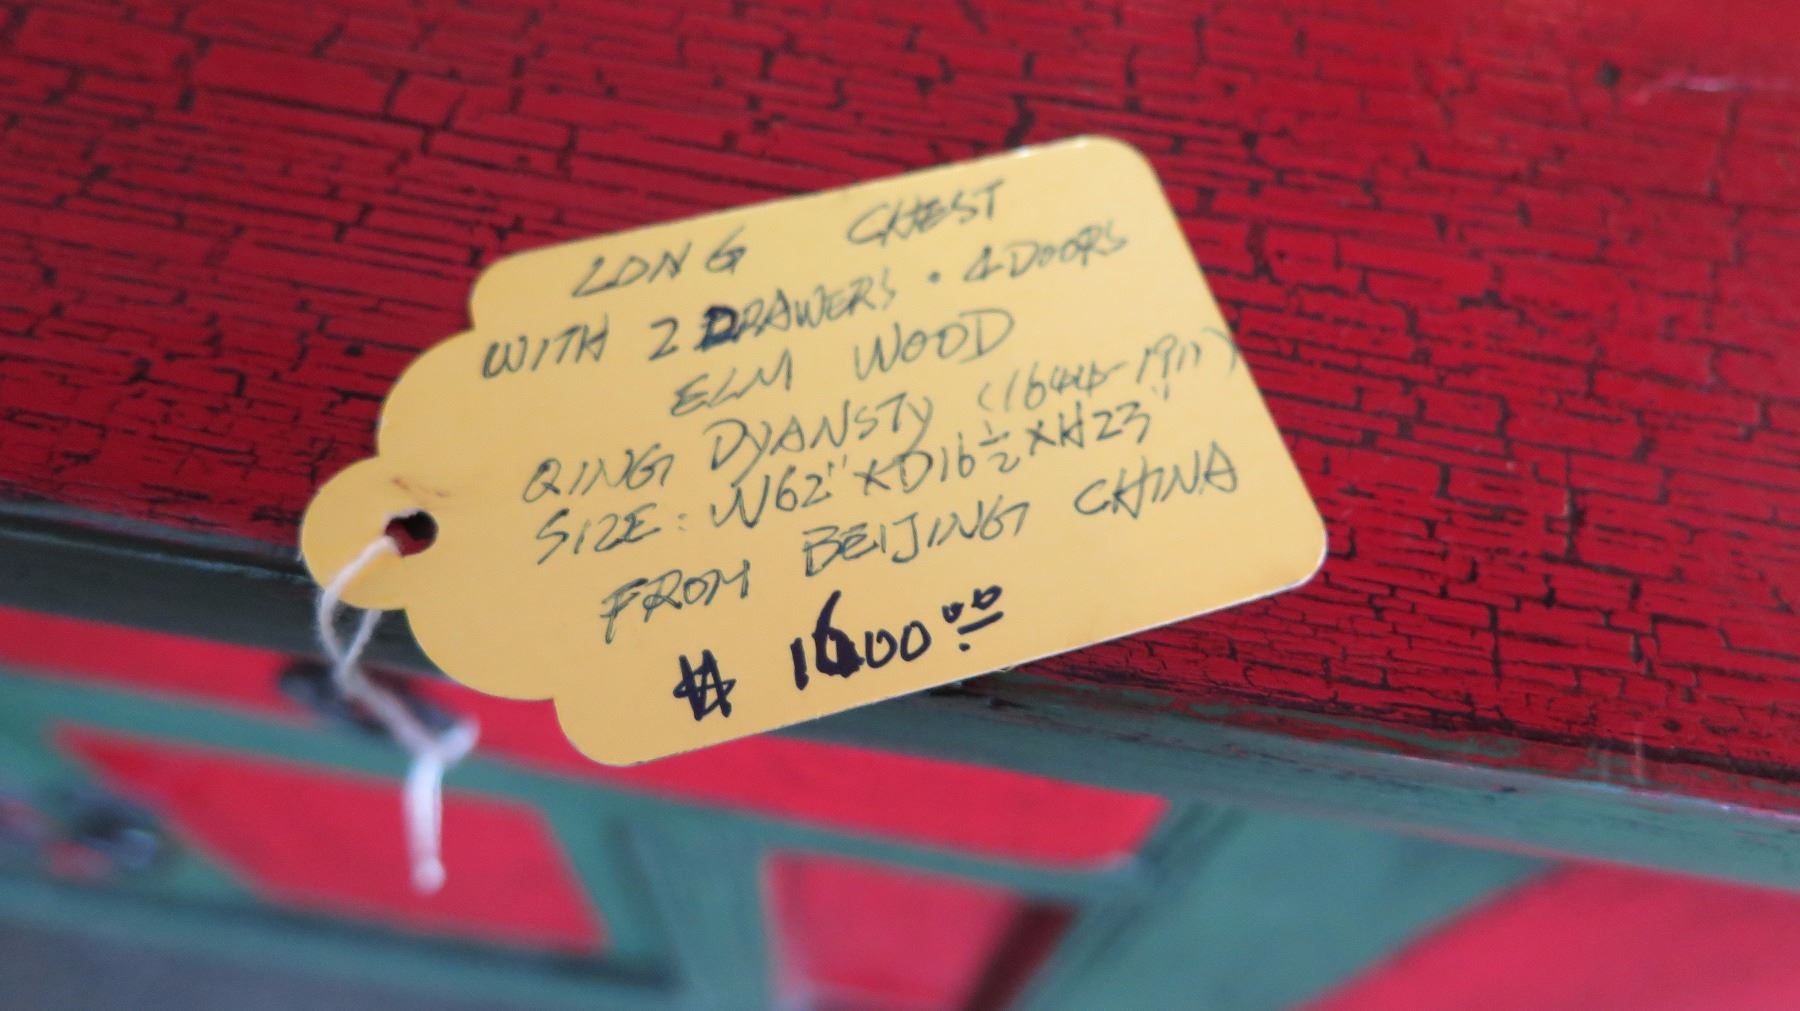 LONG CHEST
WITH 2 DRAWERS · 4 DOORS
ELM WOOD
QING DYANSTY (1644-1911)
SIZE: W62" X D16½ X H23"
FROM BEIJING CHINA
$ 1600.00